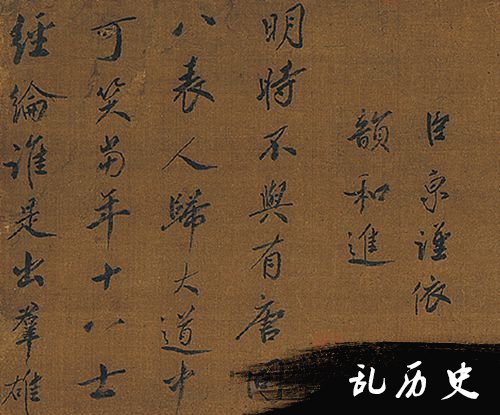 臣京謹依
韻和進
明時不與有唐同
八表人歸大道中
可笑當年十八士
經綸誰是出羣雄
乱历史